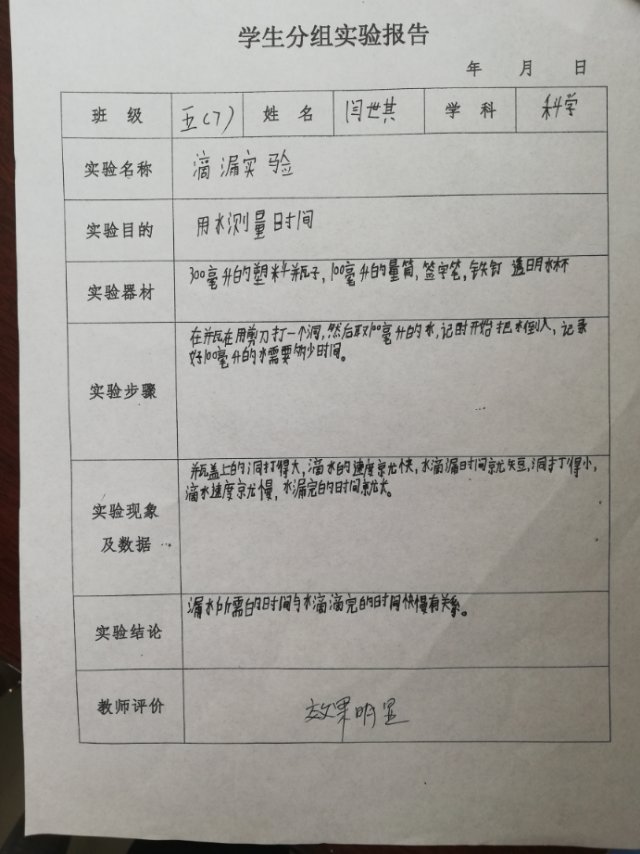 学生分组实验报告
年 月 日
班 级 五(7) 姓 名 闫世其 学 科 科学
实验名称 滴漏实验
实验目的 用水测量时间
实验器材 300毫升的塑料瓶子,100毫升的量筒,签字笔,铁钉 透明水杯
实验步骤
在瓶在用剪刀打一个洞,然后取100毫升的水,记时开始把水倒入,记录
好100毫升的水需要多少时间。
实验现象
及数据
瓶盖上的洞打得大,滴水的速度就快,水滴漏时间就短,洞打得小,
滴水速度就慢,水漏完的时间就大。
实验结论 漏水所需的时间与水滴滴完的时间快慢有关系。
教师评价 效果明显